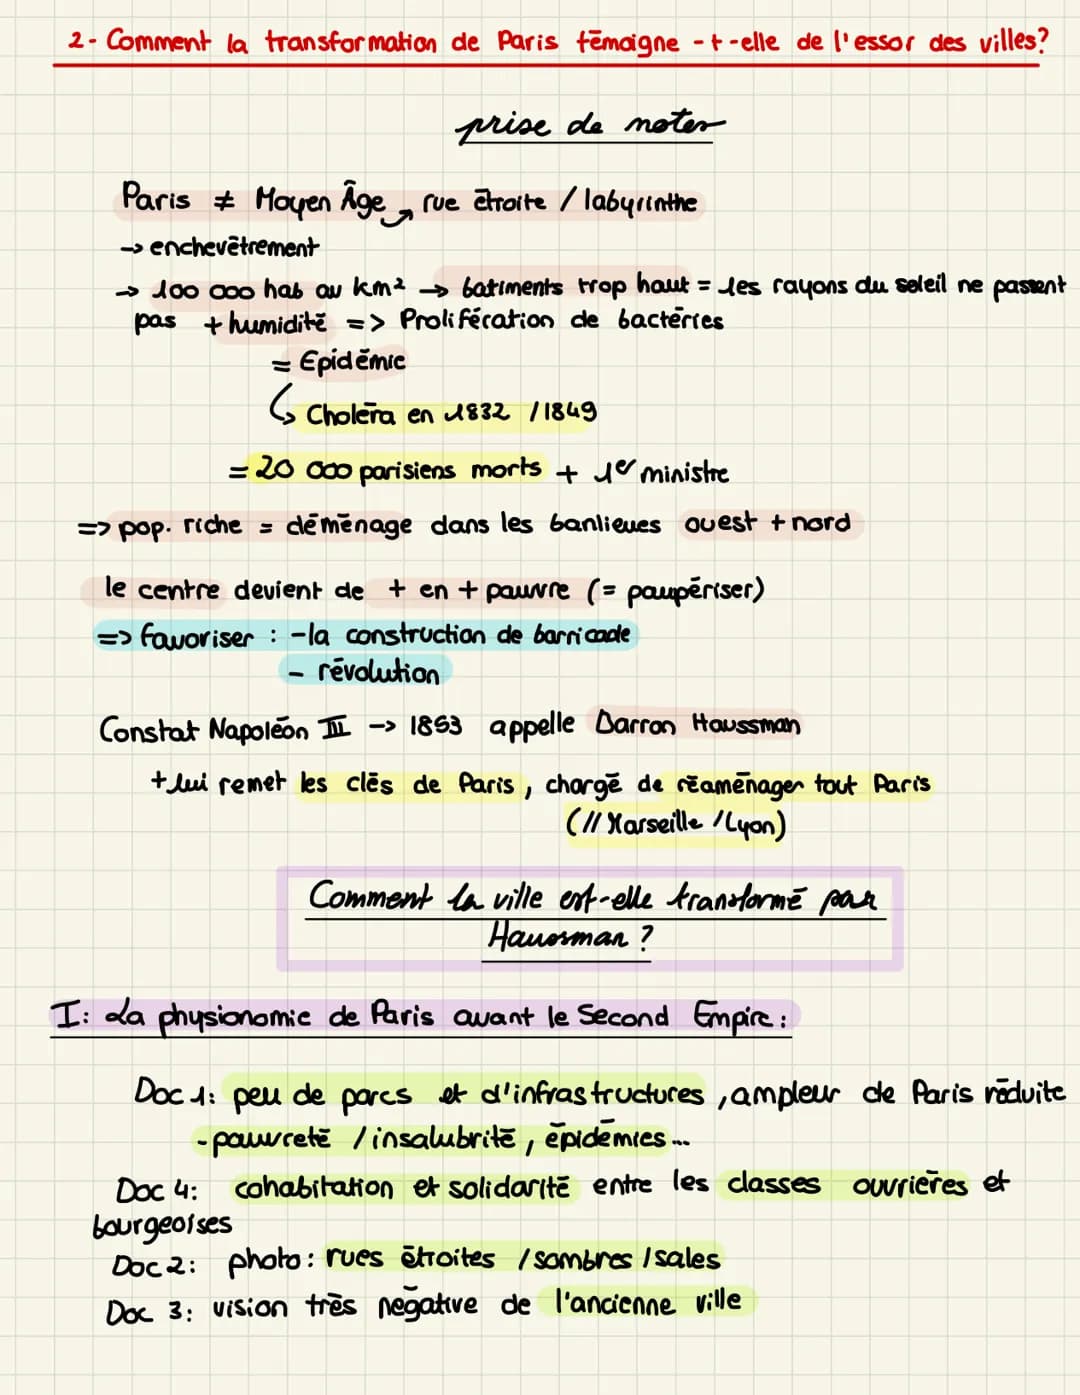 2- Comment la transformation de Paris témoigne -t-elle de l'essor des villes?
prise de notes
Paris ≠ Moyen Âge rue étroite / labyrinthe
-> enchevêtrement
-> 100 000 hab au km² -> batiments trop haut = les rayons du soleil ne passent
pas + humidité => Prolifération de bactéries
= Epidémie
↳ Choléra en 1832 / 1849
= 20 000 parisiens morts + 1er ministre
=> pop. riche = déménage dans les banlieues ouest + nord
le centre devient de + en + pauvre (= paupériser)
=> favoriser : -la construction de barricade
- révolution
Constat Napoléon III -> 1853 appelle Barron Haussman
+ lui remet les clés de Paris, chargé de réaménager tout Paris
(// Marseille / Lyon)
Comment la ville est-elle transformé par
Haussman ?
I: La physionomie de Paris avant le Second Empire :
Doc 1: peu de parcs et d'infrastructures, ampleur de Paris réduite
- pauvreté / insalubrité, épidémies...
Doc 4: cohabitation et solidarité entre les classes ouvrières et
bourgeoises
Doc 2: photo : rues étroites / sombres / sales
Doc 3: vision très négative de l'ancienne ville